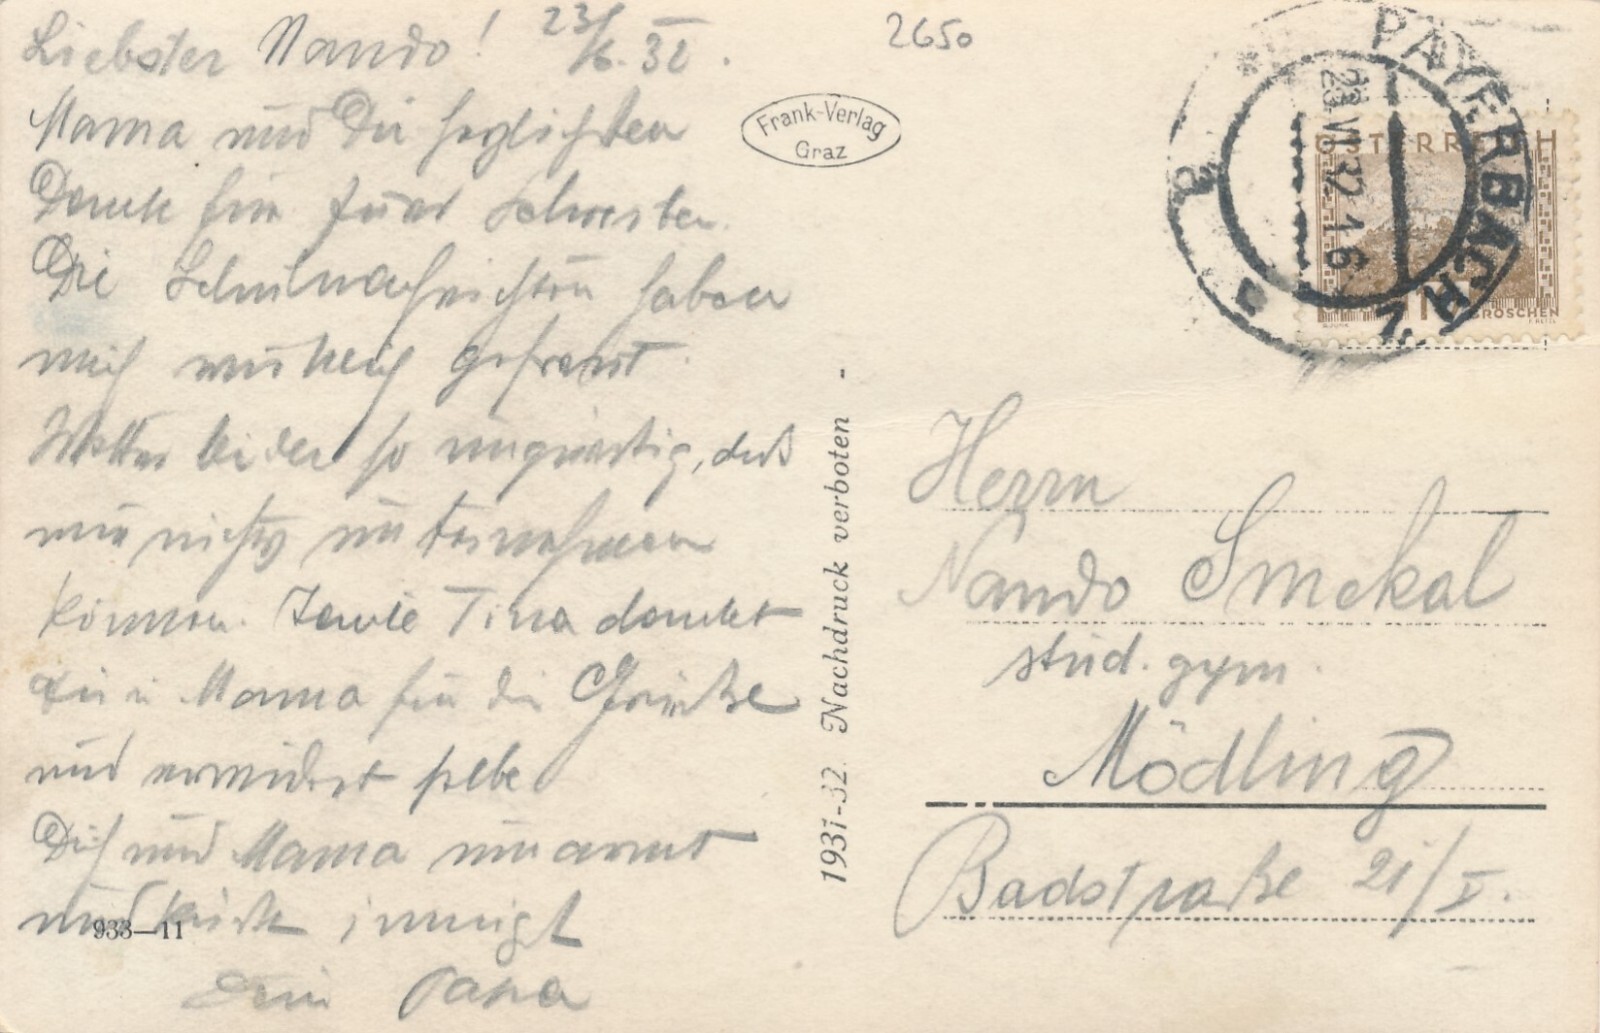 Liebster Nando! 23/6. 32.
Mama und Dir herzlichsten
Dank für Euer Schreiben.
Die Schulnachrichten haben
mich wirklich gefreut.
Wetter leider so ungünstig, daß
wir nichts unternehmen
können. Tante Tina dankt
Dir u Mama für die Grüße
und erwidert selbe
Dich und Mama umarmt
und küsst innigst
Dein Papa
933-11
2650
Frank-Verlag
Graz
1931-32 Nachdruck verboten -
PAYERBACH
23.VI.32 16
2
ÖSTERREICH
GROSCHEN
Herrn
Nando Smekal
stud. gym.
Mödling
Badstraße 21/I.